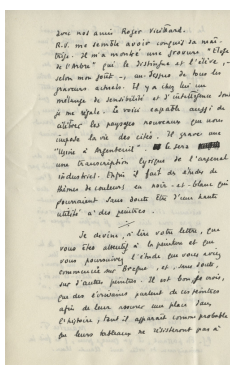 donc notre ami Roger Vieillard.
R.V. me semble avoir conquis sa maî-
trise. Il m'a montré une gravure "Éloge
de l'Arbre" qui le distingue et l'élève, -
selon mon goût -, au dessus de tous les
graveurs actuels. Il y a chez lui un
mélange de sensibilité et d'intelligence dont
je me régale. Le voici capable aussi de
les paysages nouveaux que nous
impose la vie des cités. Il grave une
"Usine à Argenteuil". Ce sera
une transcription lyrique de l'arsenal
industriel. Enfin il fait des études de
thèmes de couleurs en noir et blanc qui
pourraient sans doute être d'une haute
utilité à des peintres.
Je devine, à lire votre lettre, que
vous êtes attentif à la peinture et que
vous poursuivez l'étude que vous aviez
commencée sur Bosque, et, sans doute,
sur d'autres peintres. Il est bon, je crois,
que des écrivains parlent de ces peintres
afin de leur assurer une place dans
l'histoire; tant il apparaît comme probable
que leurs tableaux ne résisteront pas à